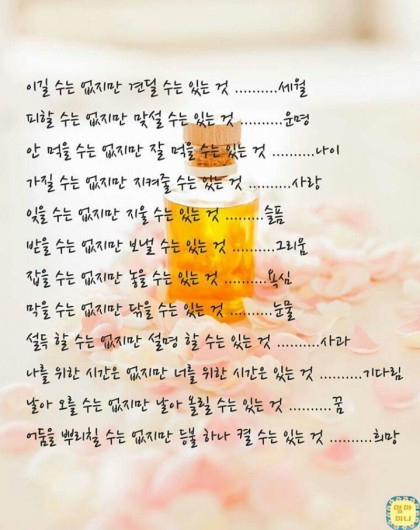 이길 수는 없지만 견딜 수는 있는 것 ..........세월
피할 수는 없지만 맞설 수는 있는 것 ..........운명
안 먹을 수는 없지만 잘 먹을 수는 있는 것 ..........나이
가질 수는 없지만 지켜줄 수는 있는 것 ..........사랑
잊을 수는 없지만 지울 수는 있는 것 .........슬픔
받을 수는 없지만 보낼 수는 있는 것 ..........그리움
잡을 수는 없지만 놓을 수는 있는 것 ..........욕심
막을 수는 없지만 닦을 수는 있는 것 ..........눈물
설득 할 수는 없지만 설명 할 수는 있는 것 ..........사과
나를 위한 시간은 없지만 너를 위한 시간은 있는 것 ..........기다림
날아 오를 수는 없지만 날아 올릴 수는 있는 것 ..........꿈
어둠을 뿌리칠 수는 없지만 등불 하나 켤 수는 있는 것 ..........희망